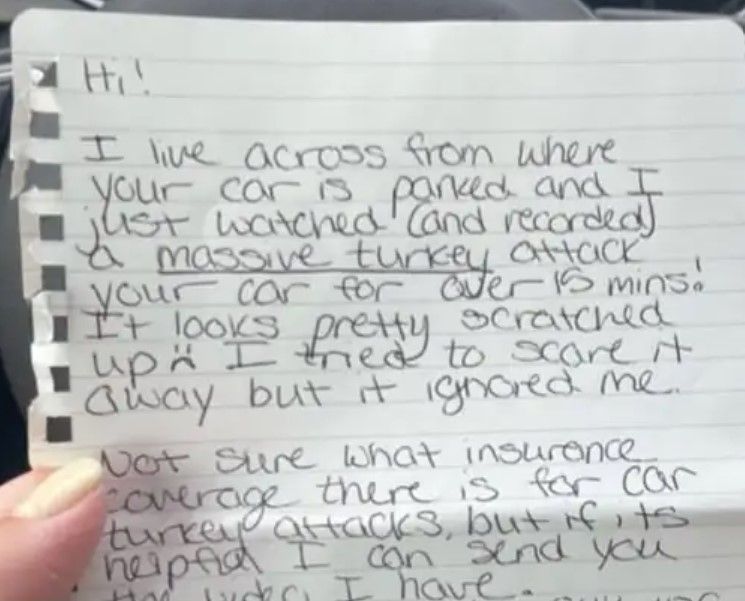 Hi!
I live across from where
your car is parked and I
just watched (and recorded)
a massive turkey attack
your car for over 15 mins!
It looks pretty scratched
up :( I tried to scare it
away but it ignored me.
Not sure what insurance
coverage there is for car
turkey attacks, but if its
helpful I can send you
the video I have.